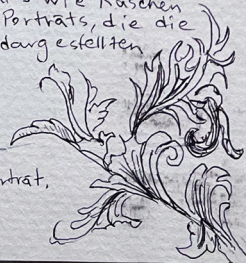 wie Kaschen
Porträts, die die
dargestellten
trät.